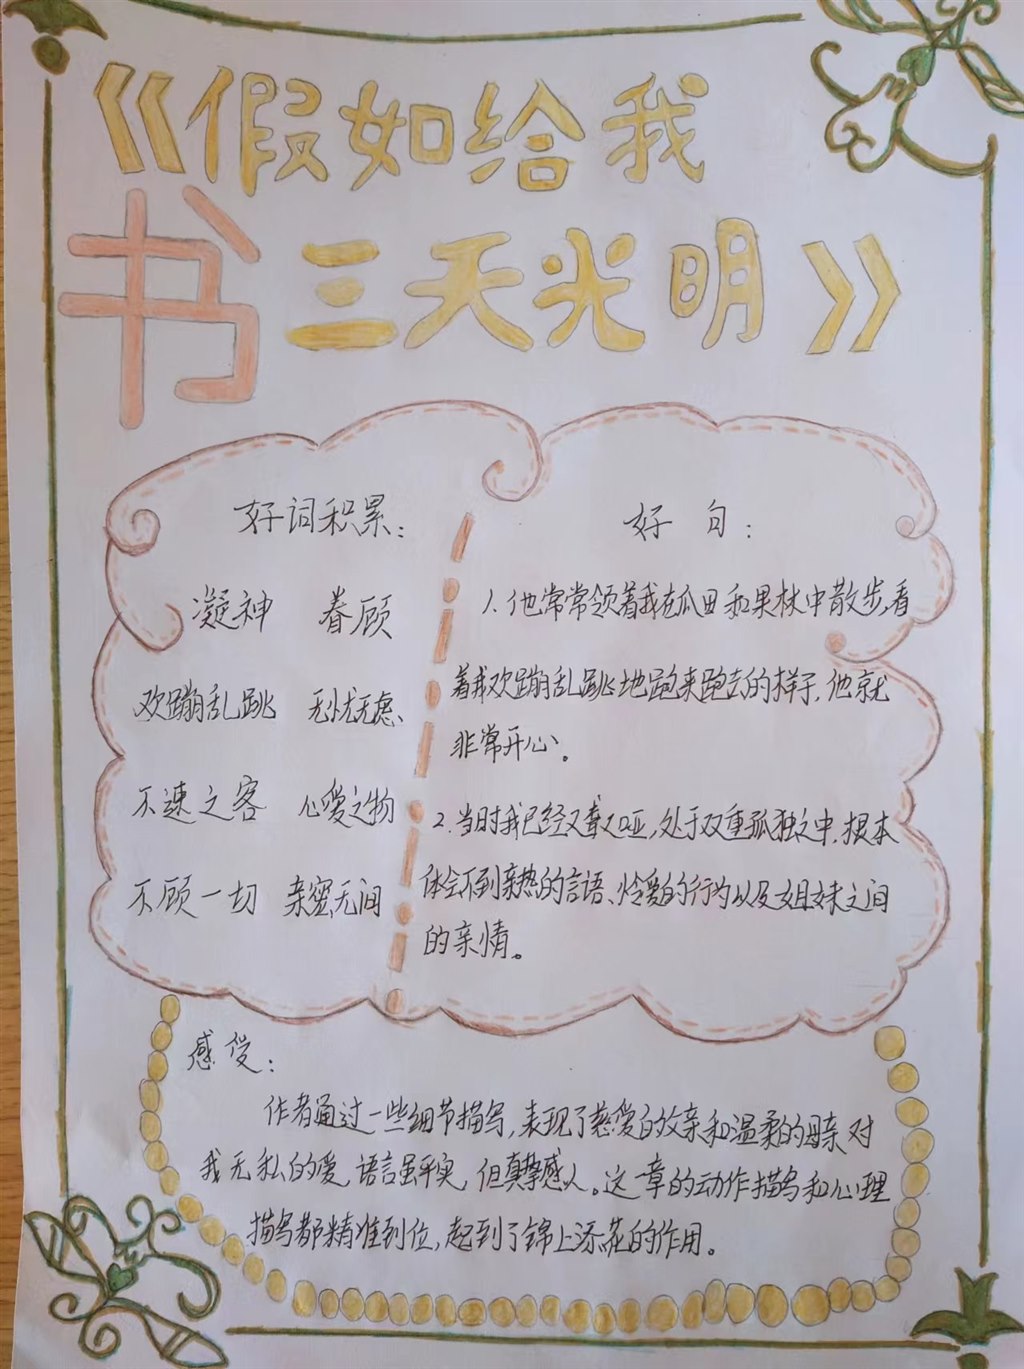 《假如给我
三天光明》
书
好词积累：
凝神 眷顾
欢蹦乱跳 无忧无虑、
不速之客 心爱之物
不顾一切 亲密无间
好句：
1.他常常领着我在瓜田和果林中散步，看
着我欢蹦乱跳地跑来跑去的样子，他就
非常开心。
2.当时我已经又聋又哑，处于双重孤独之中，根本
体会不到亲热的言语、怜爱的行为以及姐妹之间
的亲情。
感受：
作者通过一些细节描写，表现了慈爱的父亲和温柔的母亲对
我无私的爱，语言虽平实，但真挚感人。这一章的动作描写和心理
描写都精准到位，起到了锦上添花的作用。